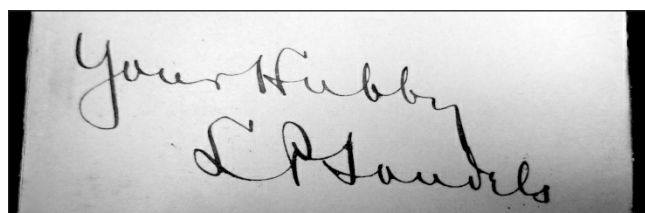 Your Hubby
L P Sandels